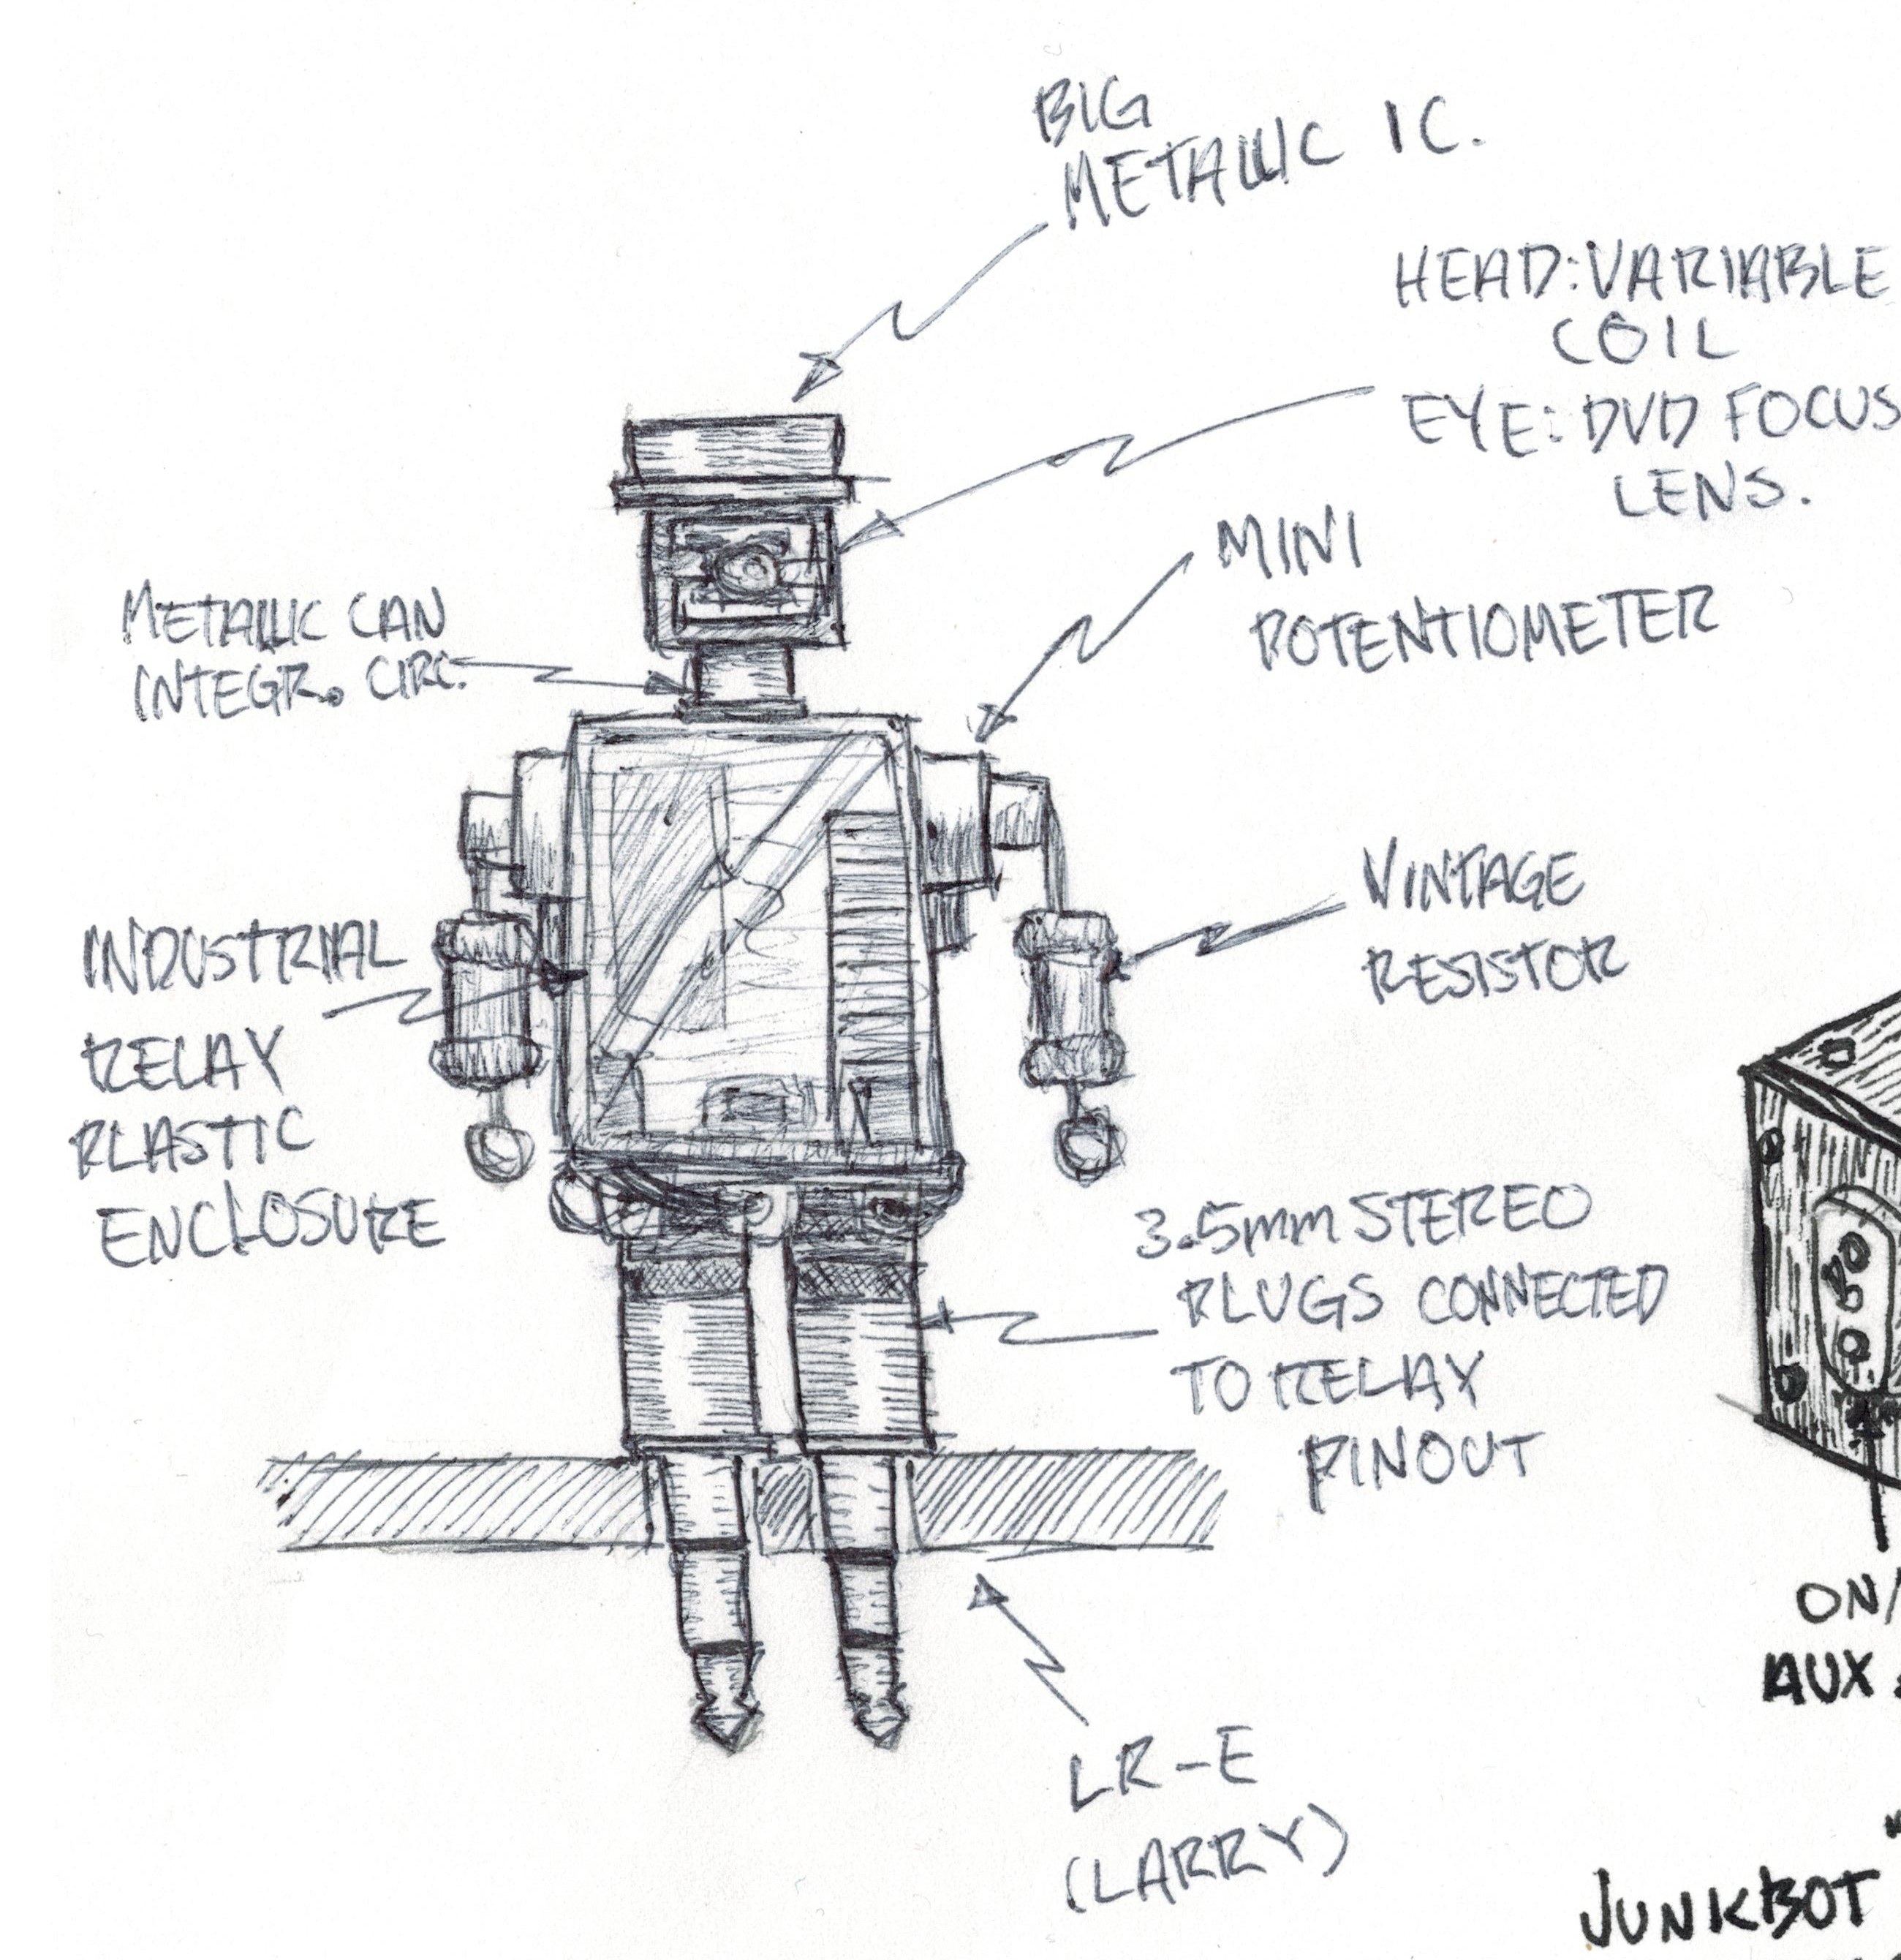 BIG
METALLIC IC.
HEAD: VARIABLE
COIL
EYE: DVD FOCUS
LENS.
MINI
POTENTIOMETER
METALLIC CAN
INTEGR. CIRC.
VINTAGE
RESISTOR
INDUSTRIAL
RELAY
PLASTIC
ENCLOSURE
3.5mm STEREO
PLUGS CONNECTED
TO RELAY
PINOUT
ON/
AUX
LR-E
(LARRY)
JUNKBOT